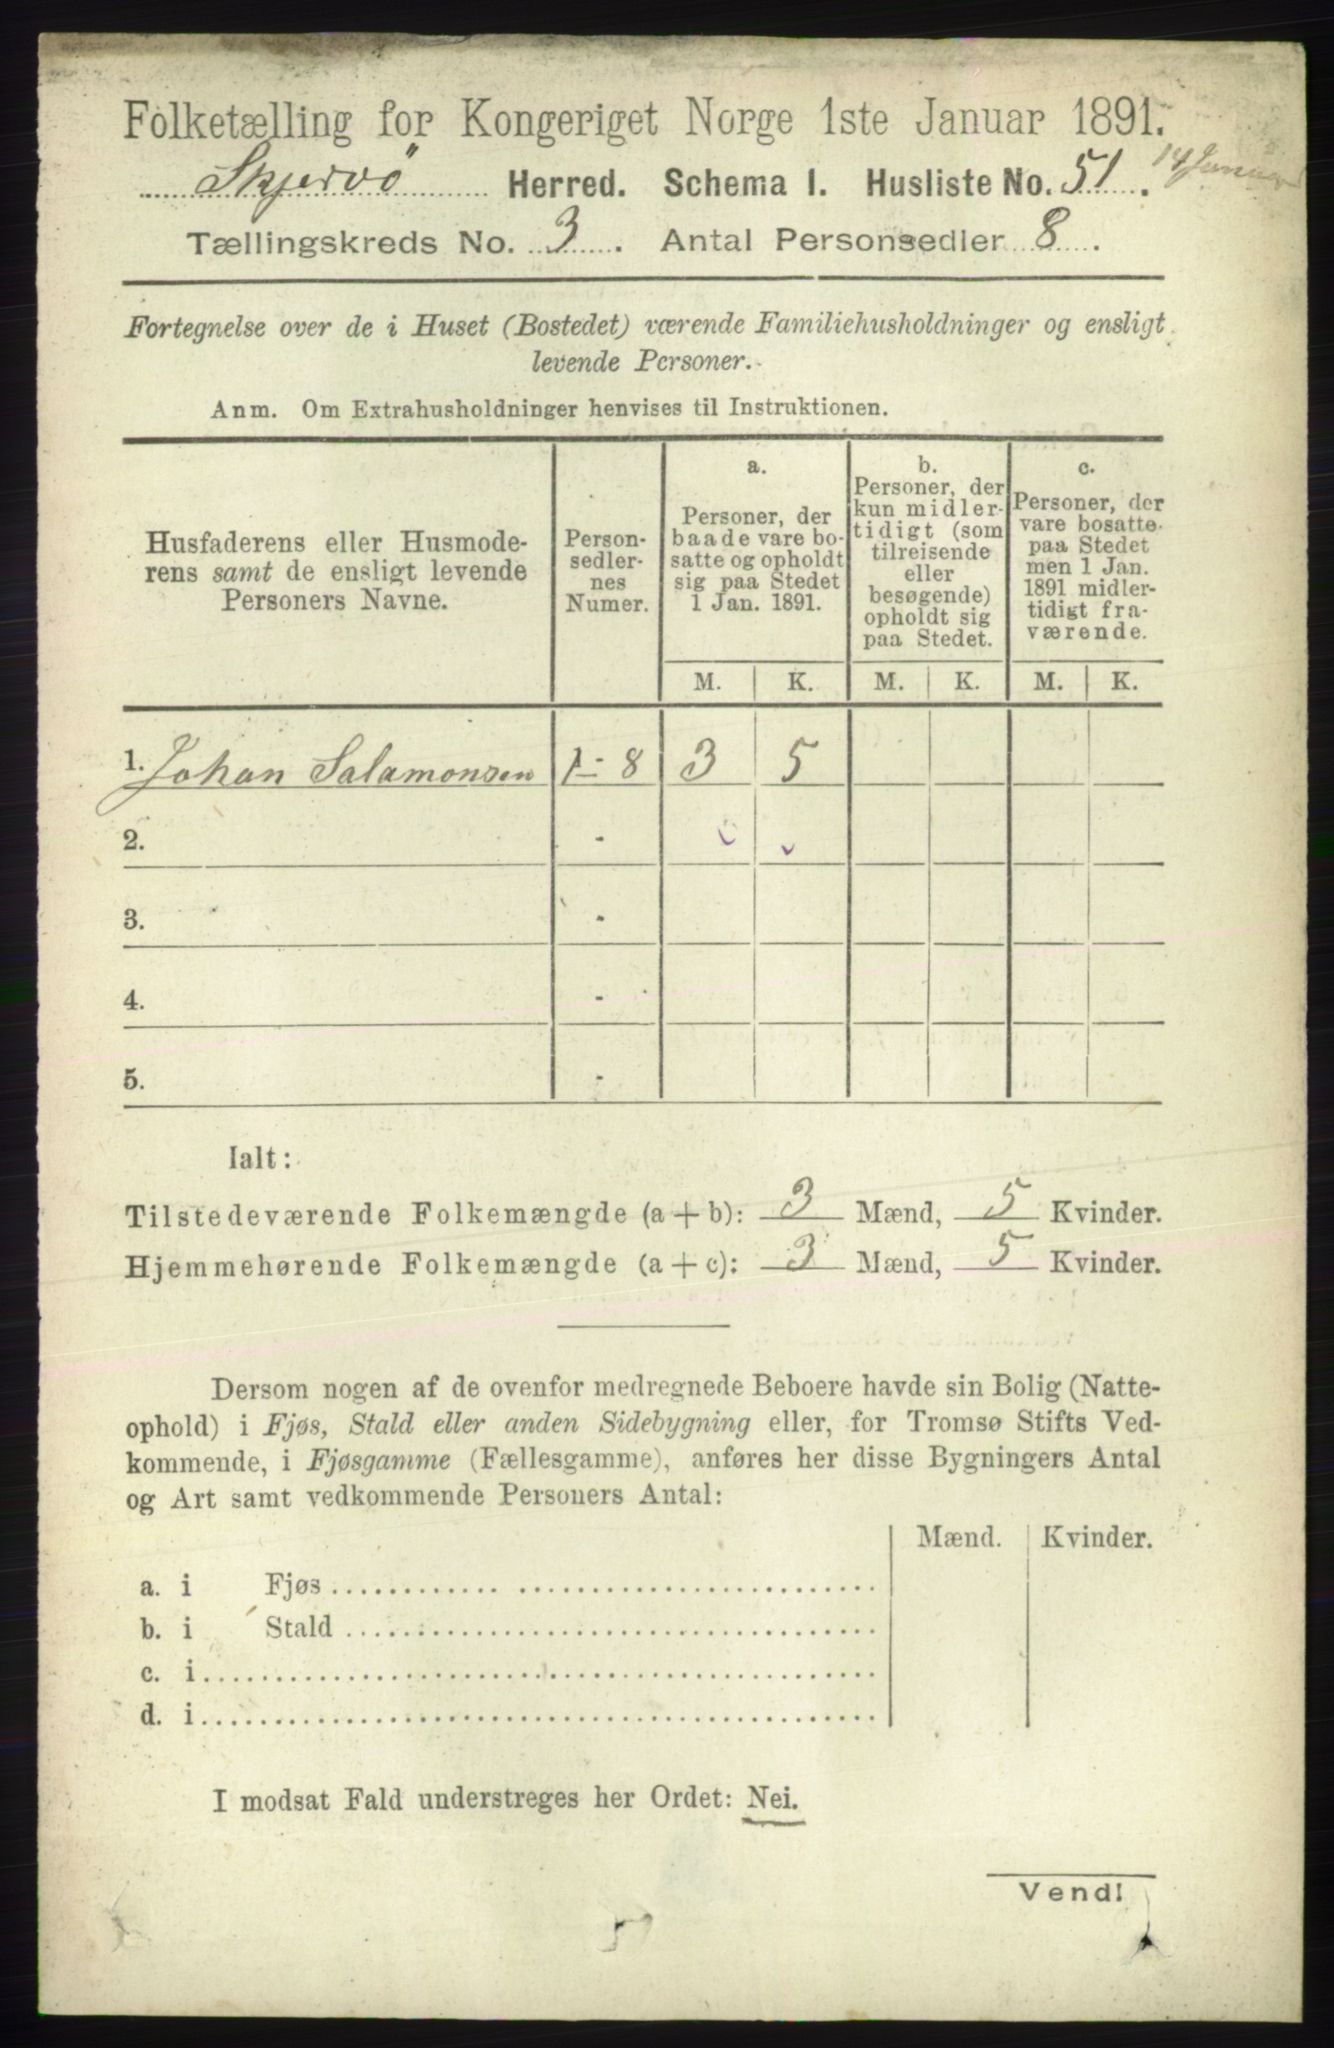 Folketælling for Kongeriget Norge 1ste Januar 1891.
Skjervö Herred. Schema I. Husliste No. 51. 14 Januar
Tællingskreds No. 3. Antal Personsedler 8.
Fortegnelse over de i Huset (Bostedet) værende Familiehusholdninger og ensligt
levende Personer.
Anm. Om Extrahusholdninger henvises til Instruktionen.
Husfaderens eller Husmode-
rens samt de ensligt levende
Personers Navne.
Person-
sedler-
nes
Numer.
a.
Personer, der
baade vare bo-
satte og opholdt
sig paa Stedet
1 Jan. 1891.
b.
Personer, der
kun midler-
tidigt (som
tilreisende
eller
besøgende)
opholdt sig
paa Stedet.
c.
Personer, der
vare bosatte
paa Stedet
men 1 Jan.
1891 midler-
tidigt fra-
værende.
M. K. M. K. M. K.
1. Johan Salamonsen 1 - 8 3 5
2. -
3. -
4. -
5. -
Ialt:
Tilstedeværende Folkemængde (a + b): 3 Mænd, 5 Kvinder.
Hjemmehørende Folkemængde (a + c): 3 Mænd, 5 Kvinder.
Dersom nogen af de ovenfor medregnede Beboere havde sin Bolig (Natte-
ophold) i Fjøs, Stald eller anden Sidebygning eller, for Tromsø Stifts Ved-
kommende, i Fjøsgamme (Fællesgamme), anføres her disse Bygningers Antal
og Art samt vedkommende Personers Antal:
Mænd. Kvinder.
a. i Fjøs
b. i Stald
c. i
d. i
I modsat Fald understreges her Ordet: Nei.
Vend!